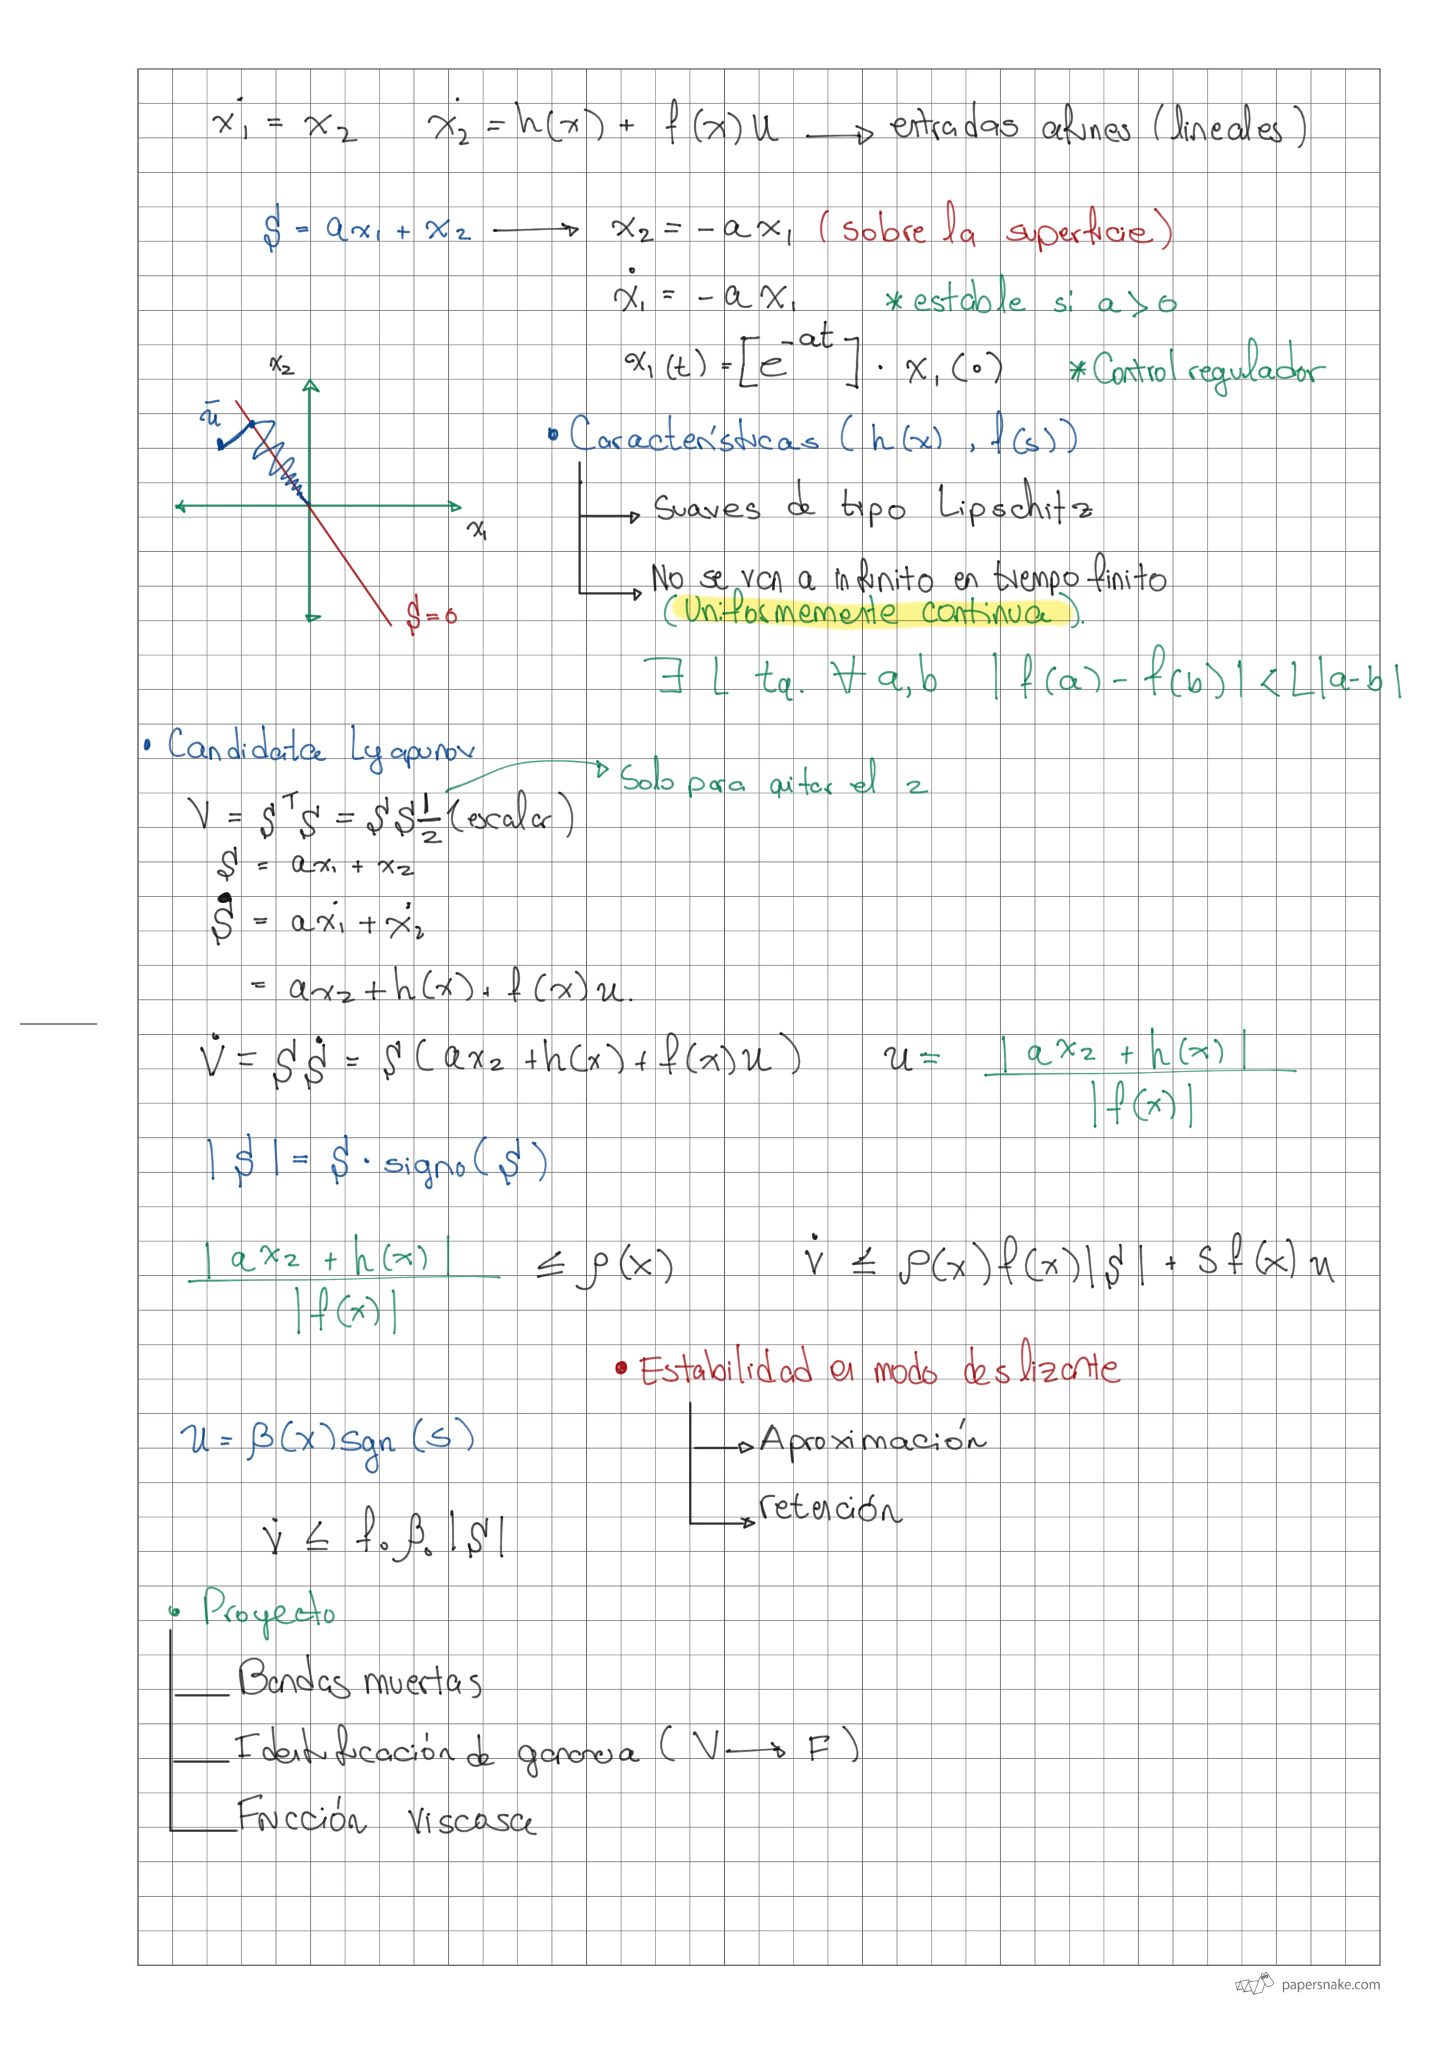 ẋ₁ = x₂   ẋ₂ = h(x) + f(x)u → entradas afines (lineales)
S = ax₁ + x₂ → x₂ = -ax₁ (sobre la superficie)
ẋ₁ = -ax₁   * estable si a > 0
x₁(t) = [e^{-at}] · x₁(0)   * Control regulador
x₂
ū
x₁
S = 0
• Características (h(x), f(s))
→ Suaves de tipo Lipschitz
→ No se van a infinito en tiempo finito
(Uniformemente continua).
∃ L tq. ∀ a,b   |f(a) - f(b)| < L|a-b|
• Candidata Lyapunov
→ Solo para quitar el 2
V = SᵀS = SS 1/2 (escalar)
S = ax₁ + x₂
Ṡ = aẋ₁ + ẋ₂
= ax₂ + h(x) + f(x)u.
V̇ = SṠ = S(ax₂ + h(x) + f(x)u)   u = |ax₂ + h(x)| / |f(x)|
|S| = S · signo(S)
|ax₂ + h(x)| / |f(x)| ≤ ρ(x)   V̇ ≤ ρ(x)f(x)|S| + Sf(x)u
• Estabilidad en modo deslizante
→ Aproximación
→ retención
u = β(x)sgn(s)
V̇ ≤ f₀β₀|S|
• Proyecto
Bandas muertas
Identificación de ganancia (V → F)
Fricción viscosa
papersnake.com